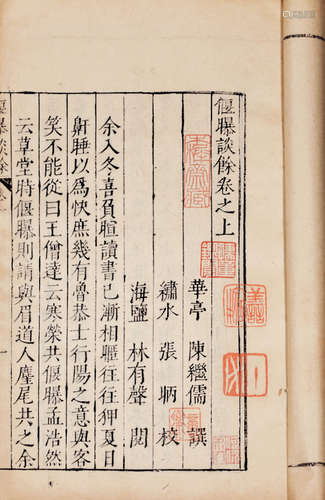 偃曝談餘卷之上
華亭 陳繼儒 撰
繡水 張昞 校
海鹽 林有聲 閱
余入冬喜負暄讀書已漸相往往狎夏日
鼾睡以爲快庶幾有魯恭士行陽之意與客
笑不能從曰王僧達云寒榮共偃曝孟浩然
云草堂時偃曝則請與眉道人麈尾共之余
偃曝談餘